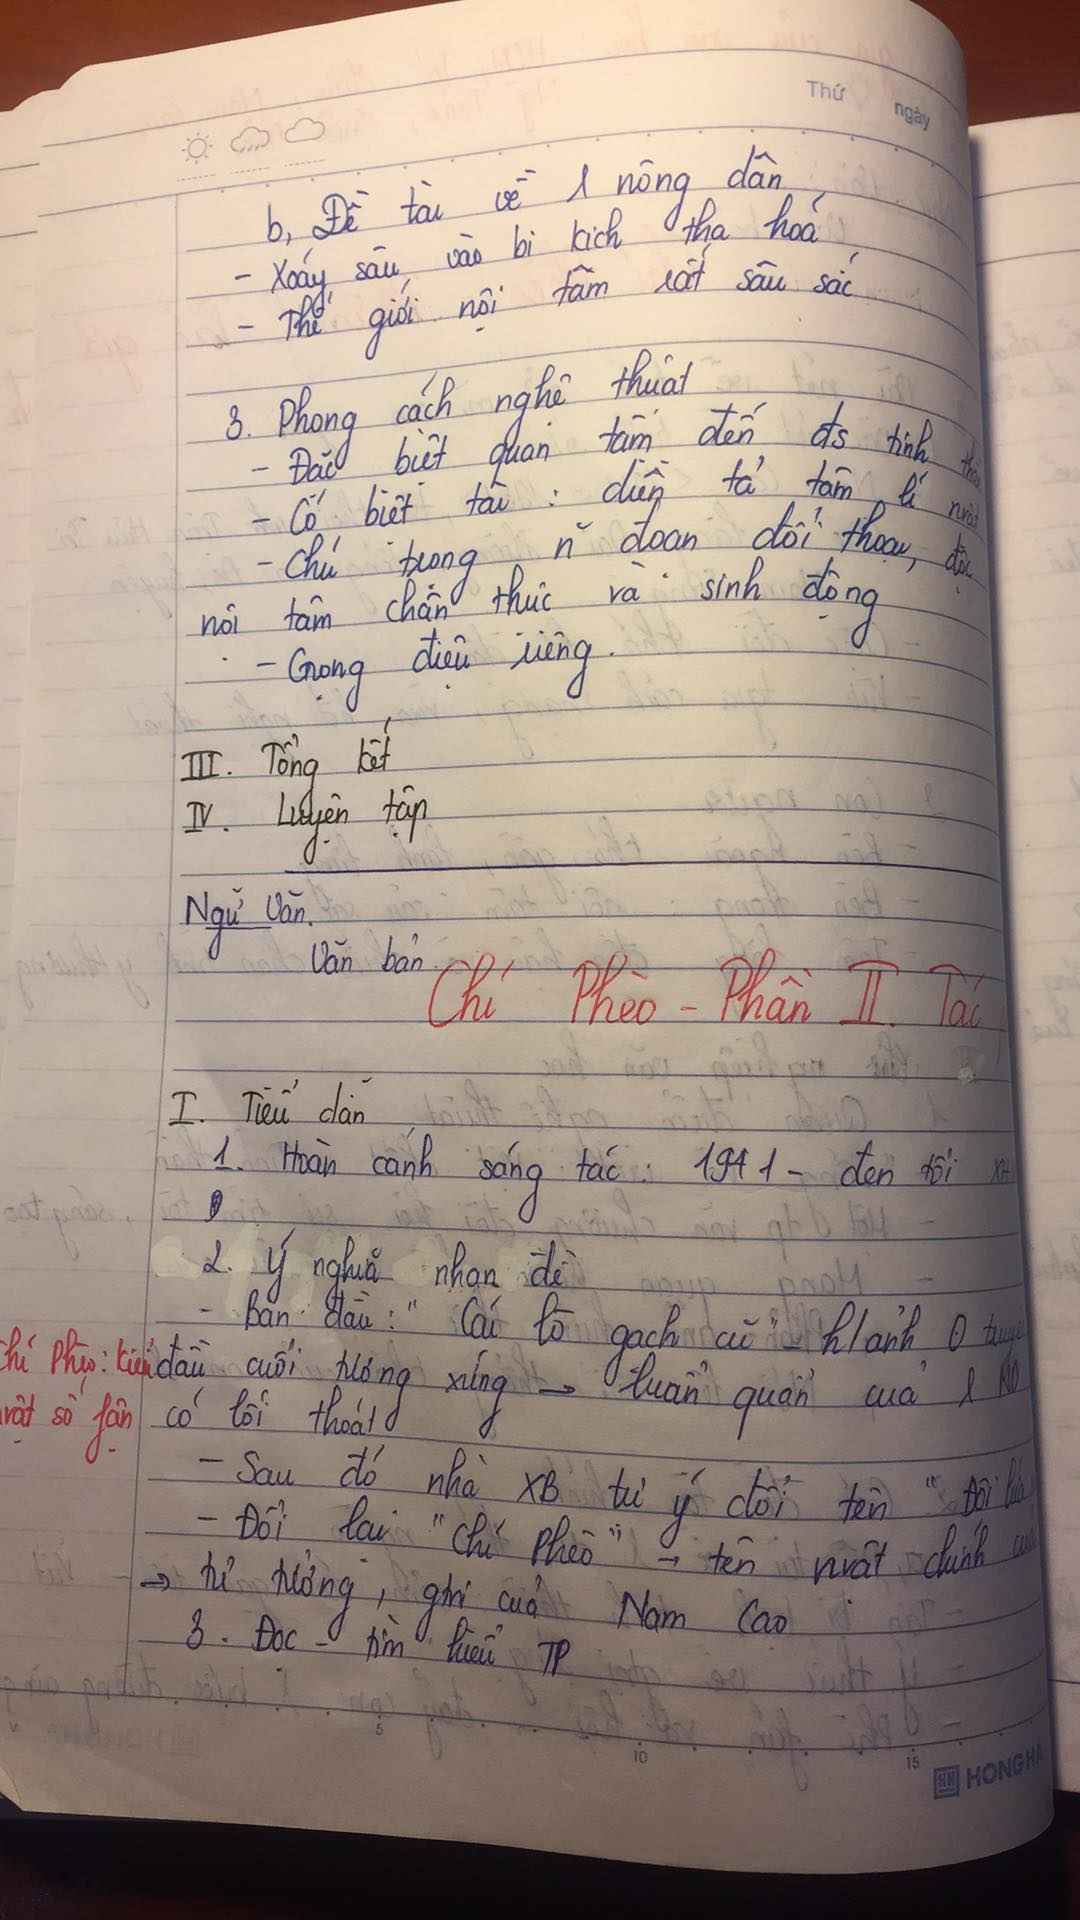 Thứ ngày
b, Đề tài về 1 nông dân
- Xoáy sâu vào bi kịch tha hoá
- Thế giới nội tâm rất sâu sắc
3. Phong cách nghệ thuật
- Đặc biệt quan tâm đến đs tinh
- Có biệt tài : diễn tả tâm lí nvật
- Chú trọng n~ đoạn đối thoại, độc
nội tâm chân thực và sinh động
- Giọng điệu riêng.
III. Tổng kết
IV. Luyện tập
Ngữ Văn.
Văn bản
Chí Phèo - Phần II. Tác
I. Tiểu dẫn
1. Hoàn cảnh sáng tác : 1941 - đen tối XH
2. Ý nghĩa nhan đề
- Ban đầu : " Cái lò gạch cũ " - h/ảnh
đầu cuối tương xứng → luẩn quẩn của 1
có lối thoát
Chí Phèo: kiểu
vật số fận
- Sau đó nhà XB tự ý đổi tên " Đôi lứa
- Đổi lại " Chí Phèo " → tên nvật chính
→ tư tưởng, ghi của Nam Cao
3. Đọc - tìm hiểu TP
5
10
15
HONG HA